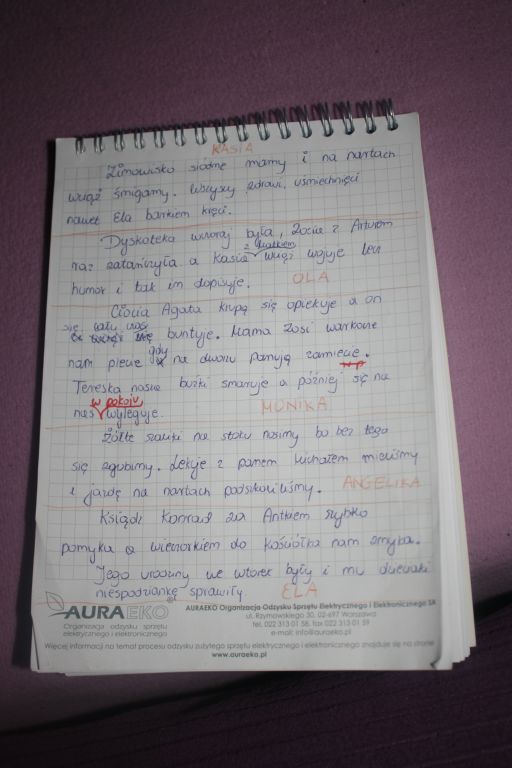 KASIA
Zimowisko siódme mamy i na nartach
wciąż śmigamy. Wszyscy zdrowi, uśmiechnięci
nawet Ela barkiem kręci.
Dyskoteka wczoraj była, Zosia z Arturem
raz zatańczyła a Kasia z Bratkiem wciąż wojuje lecz
humor i tak im dopisuje. OLA
Ciocia Agata krupą się opiekuje a on
się cały czas buntuje. Mama Zosi warkocze
nam plecie gdy na dworu panują zamiecie.
Tereska nasze buźki smaruje a później się na
nas w pokoju wyleguje. MONIKA
Żółte szaliki na stoku nosimy bo bez tego
się zgubimy. Lekcje z panem Michałem mieliśmy
i jazdę na nartach podszkoliliśmy. ANGELIKA
Ksiądz Konrad za Antkiem szybko
pomyka a wieczorkiem do Kościółka nam zmyka.
Jego urodziny we wtorek były i mu dzieciaki
niespodziankę sprawiły. ELA
AURAEKO
Organizacja odzysku sprzętu
elektrycznego i elektronicznego
AURAEKO Organizacja Odzysku Sprzętu Elektrycznego i Elektronicznego SA
ul. Rzymowskiego 30, 02-697 Warszawa
tel. 022 313 01 58, fax 022 313 01 59
e-mail: info@auraeko.pl
Więcej informacji na temat procesu odzysku zużytego sprzętu elektrycznego i elektronicznego znajduje się na stronie
www.auraeko.pl